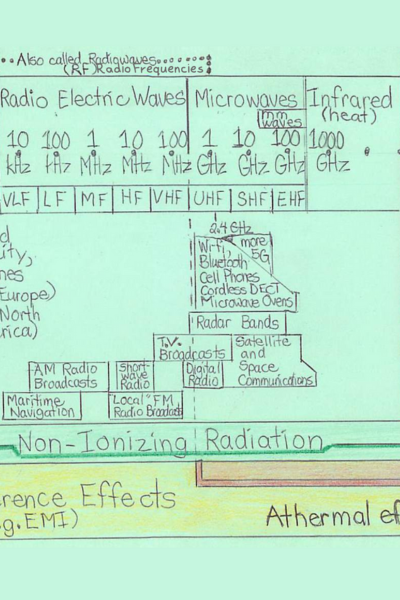 Also called Radiowaves
(RF) Radio Frequencies
Radio Electric Waves Microwaves Infrared
mm (heat)
waves
10 100 1 10 100 1 10 100 1000
kHz kHz MHz MHz MHz GHz GHz GHz GHz
VLF LF MF HF VHF UHF SHF EHF
2.4 GHz
Wifi, more
5G
Bluetooth
Cell Phones
Cordless DECT
Microwave Ovens
Europe)
North
rica)
Radar Bands
T.V. Satellite
Broadcasts and
AM Radio Short- Digital Space
Broadcasts wave Radio Communications
Radio
Maritime "Local" FM
Navigation Radio Broadcast
Non-Ionizing Radiation
rence Effects
g. EMI)
Athermal ef